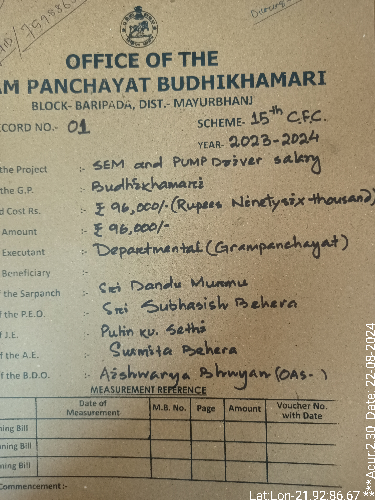 OFFICE OF THE
AM PANCHAYAT BUDHIKHAMARI
BLOCK- BARIPADA, DIST.- MAYURBHANJ
CORD NO.- 01 SCHEME- 15th C.F.C.
YEAR- 2023-2024
the Project :- SEM and PUMP Driver salary
the G.P. :- Budhikhamari
d Cost Rs. :- ₹ 96,000/- (Rupees Ninetysix thousand)
Amount :- ₹ 96,000/-
Executant :- Departmental (Grampanchayat)
Beneficiary :-
f the Sarpanch :- Sri Dandu Murmu
f the P.E.O. :- Sri Subhasish Behera
f J.E. :- Pulin ku. Sethi
f the A.E. :- Susmita Behera
f the B.D.O. :- Aishwarya Bhuyan (OAS- )
MEASUREMENT REFERENCE
Date of Measurement M.B. No. Page Amount Voucher No. with Date
ning Bill
nning Bill
ning Bill
Commencement:-
Lat:Lon-21.92:86.67 ***Acur:2.30 Date: 22-08-2024